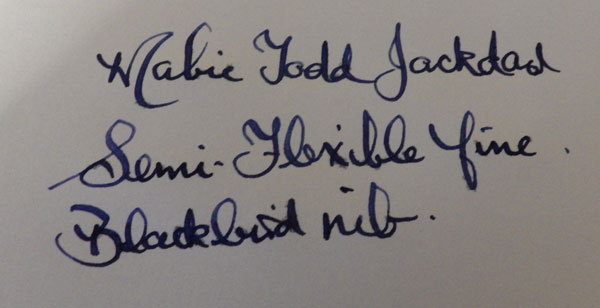 Mabie Todd Jackdad
Semi-Flexible fine.
Blackbird nib.